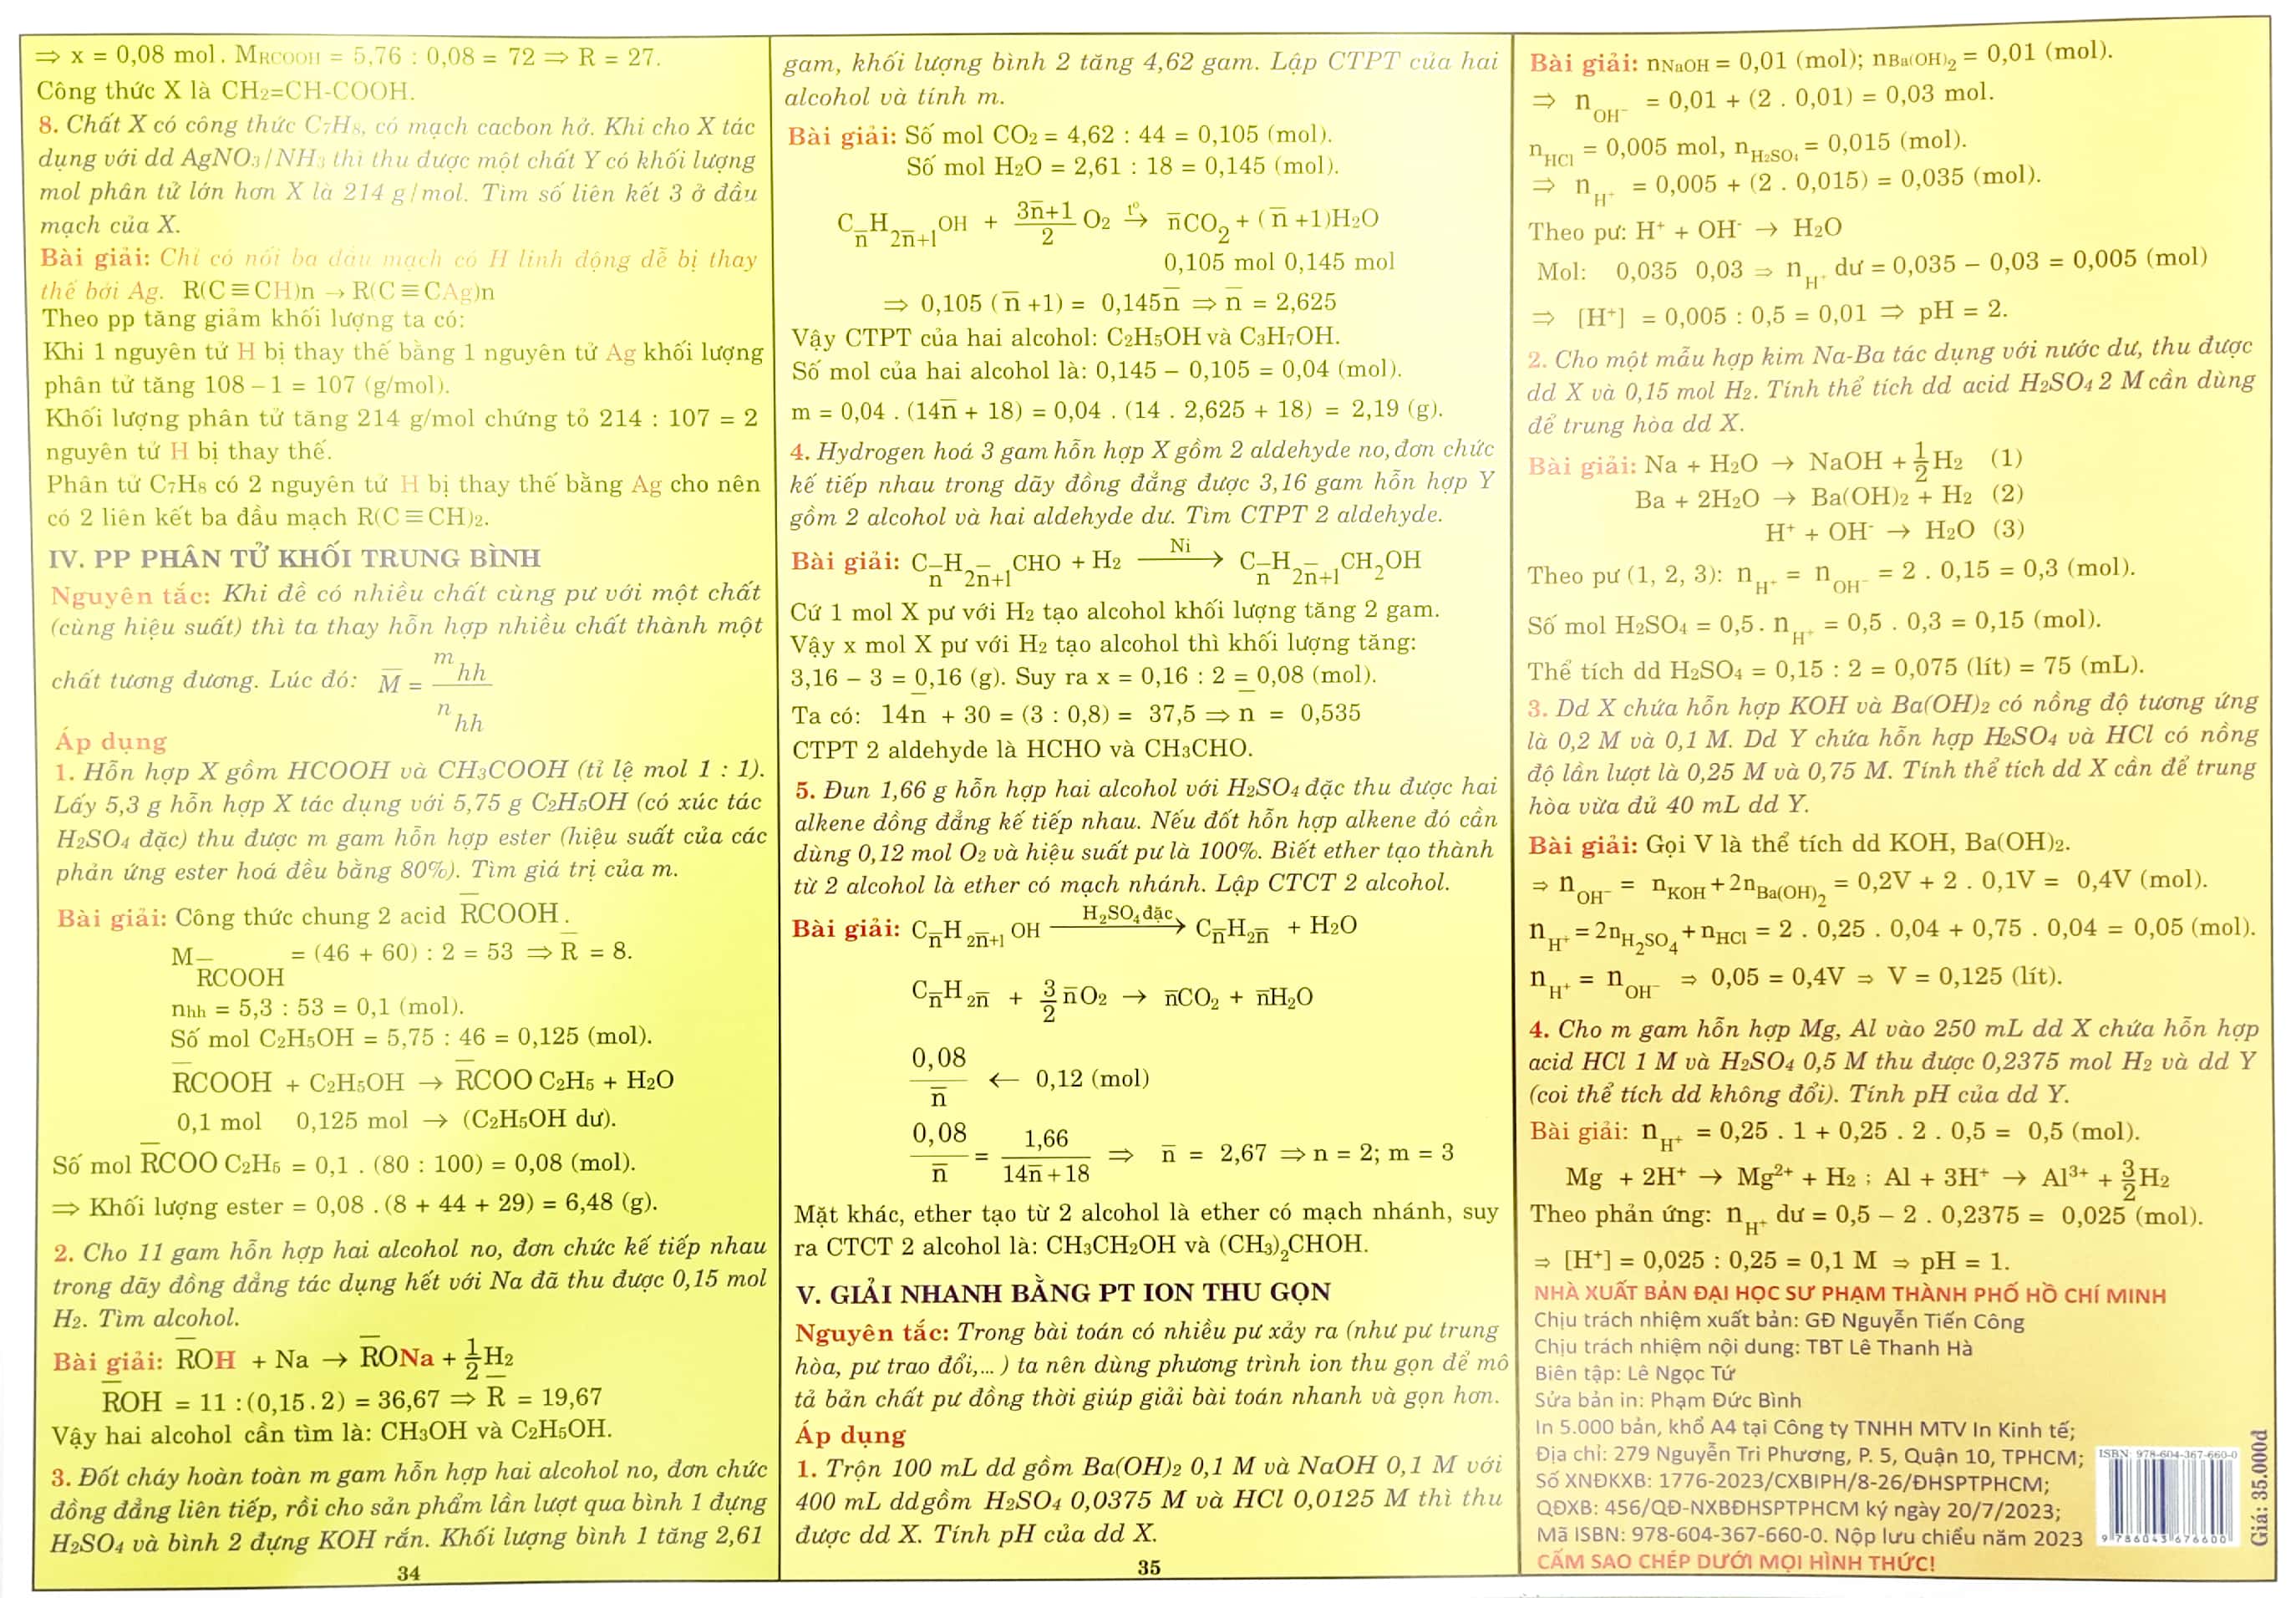 ⇒ x = 0,08 mol. MRCOOH = 5,76 : 0,08 = 72 ⇒ R = 27.
Công thức X là CH₂=CH-COOH.
8. Chất X có công thức C₇H₈, có mạch cacbon hở. Khi cho X tác
dụng với dd AgNO₃/NH₃ thì thu được một chất Y có khối lượng
mol phân tử lớn hơn X là 214 g/mol. Tìm số liên kết 3 ở đầu
mạch của X.
Bài giải: Chỉ có nối ba đầu mạch có H linh động dễ bị thay
thế bởi Ag. R(C≡CH)n → R(C≡CAg)n
Theo pp tăng giảm khối lượng ta có:
Khi 1 nguyên tử H bị thay thế bằng 1 nguyên tử Ag khối lượng
phân tử tăng 108 – 1 = 107 (g/mol).
Khối lượng phân tử tăng 214 g/mol chứng tỏ 214 : 107 = 2
nguyên tử H bị thay thế.
Phân tử C₇H₈ có 2 nguyên tử H bị thay thế bằng Ag cho nên
có 2 liên kết ba đầu mạch R(C≡CH)₂.
IV. PP PHÂN TỬ KHỐI TRUNG BÌNH
Nguyên tắc: Khi đề có nhiều chất cùng pư với một chất
(cùng hiệu suất) thì ta thay hỗn hợp nhiều chất thành một
chất tương đương. Lúc đó: M̅ = m hh / n hh
Áp dụng
1. Hỗn hợp X gồm HCOOH và CH₃COOH (tỉ lệ mol 1 : 1).
Lấy 5,3 g hỗn hợp X tác dụng với 5,75 g C₂H₅OH (có xúc tác
H₂SO₄ đặc) thu được m gam hỗn hợp ester (hiệu suất của các
phản ứng ester hoá đều bằng 80%). Tìm giá trị của m.
Bài giải: Công thức chung 2 acid R̅COOH.
M R̅COOH = (46 + 60) : 2 = 53 ⇒ R̅ = 8.
nhh = 5,3 : 53 = 0,1 (mol).
Số mol C₂H₅OH = 5,75 : 46 = 0,125 (mol).
R̅COOH + C₂H₅OH → R̅COO C₂H₅ + H₂O
0,1 mol 0,125 mol → (C₂H₅OH dư).
Số mol R̅COO C₂H₅ = 0,1 . (80 : 100) = 0,08 (mol).
⇒ Khối lượng ester = 0,08 . (8 + 44 + 29) = 6,48 (g).
2. Cho 11 gam hỗn hợp hai alcohol no, đơn chức kế tiếp nhau
trong dãy đồng đẳng tác dụng hết với Na đã thu được 0,15 mol
H₂. Tìm alcohol.
Bài giải: R̅OH + Na → R̅ONa + 1/2 H₂
R̅OH = 11 : (0,15 . 2) = 36,67 ⇒ R̅ = 19,67
Vậy hai alcohol cần tìm là: CH₃OH và C₂H₅OH.
3. Đốt cháy hoàn toàn m gam hỗn hợp hai alcohol no, đơn chức
đồng đẳng liên tiếp, rồi cho sản phẩm lần lượt qua bình 1 đựng
H₂SO₄ và bình 2 đựng KOH rắn. Khối lượng bình 1 tăng 2,61
34
gam, khối lượng bình 2 tăng 4,62 gam. Lập CTPT của hai
alcohol và tính m.
Bài giải: Số mol CO₂ = 4,62 : 44 = 0,105 (mol).
Số mol H₂O = 2,61 : 18 = 0,145 (mol).
Cn̅H2n̅+1OH + (3n̅+1)/2 O₂ →(t°) n̅CO₂ + (n̅ +1)H₂O
0,105 mol 0,145 mol
⇒ 0,105 (n̅ +1) = 0,145n̅ ⇒ n̅ = 2,625
Vậy CTPT của hai alcohol: C₂H₅OH và C₃H₇OH.
Số mol của hai alcohol là: 0,145 – 0,105 = 0,04 (mol).
m = 0,04 . (14n̅ + 18) = 0,04 . (14 . 2,625 + 18) = 2,19 (g).
4. Hydrogen hoá 3 gam hỗn hợp X gồm 2 aldehyde no, đơn chức
kế tiếp nhau trong dãy đồng đẳng được 3,16 gam hỗn hợp Y
gồm 2 alcohol và hai aldehyde dư. Tìm CTPT 2 aldehyde.
Bài giải: Cn̅H2n̅+1CHO + H₂ →(Ni) Cn̅H2n̅+1CH₂OH
Cứ 1 mol X pư với H₂ tạo alcohol khối lượng tăng 2 gam.
Vậy x mol X pư với H₂ tạo alcohol thì khối lượng tăng:
3,16 – 3 = 0,16 (g). Suy ra x = 0,16 : 2 = 0,08 (mol).
Ta có: 14n̅ + 30 = (3 : 0,8) = 37,5 ⇒ n̅ = 0,535
CTPT 2 aldehyde là HCHO và CH₃CHO.
5. Đun 1,66 g hỗn hợp hai alcohol với H₂SO₄ đặc thu được hai
alkene đồng đẳng kế tiếp nhau. Nếu đốt hỗn hợp alkene đó cần
dùng 0,12 mol O₂ và hiệu suất pư là 100%. Biết ether tạo thành
từ 2 alcohol là ether có mạch nhánh. Lập CTCT 2 alcohol.
Bài giải: Cn̅H2n̅+1OH →(H₂SO₄ đặc) Cn̅H2n̅ + H₂O
Cn̅H2n̅ + 3/2 n̅O₂ → n̅CO₂ + n̅H₂O
0,08/n̅ ← 0,12 (mol)
0,08/n̅ = 1,66/(14n̅+18) ⇒ n̅ = 2,67 ⇒ n = 2; m = 3
Mặt khác, ether tạo từ 2 alcohol là ether có mạch nhánh, suy
ra CTCT 2 alcohol là: CH₃CH₂OH và (CH₃)₂CHOH.
V. GIẢI NHANH BẰNG PT ION THU GỌN
Nguyên tắc: Trong bài toán có nhiều pư xảy ra (như pư trung
hòa, pư trao đổi,... ) ta nên dùng phương trình ion thu gọn để mô
tả bản chất pư đồng thời giúp giải bài toán nhanh và gọn hơn.
Áp dụng
1. Trộn 100 mL dd gồm Ba(OH)₂ 0,1 M và NaOH 0,1 M với
400 mL dd gồm H₂SO₄ 0,0375 M và HCl 0,0125 M thì thu
được dd X. Tính pH của dd X.
35
Bài giải: nNaOH = 0,01 (mol); nBa(OH)₂ = 0,01 (mol).
⇒ nOH⁻ = 0,01 + (2 . 0,01) = 0,03 mol.
nHCl = 0,005 mol, nH₂SO₄ = 0,015 (mol).
⇒ nH⁺ = 0,005 + (2 . 0,015) = 0,035 (mol).
Theo pư: H⁺ + OH⁻ → H₂O
Mol: 0,035 0,03 ⇒ nH⁺ dư = 0,035 – 0,03 = 0,005 (mol)
⇒ [H⁺] = 0,005 : 0,5 = 0,01 ⇒ pH = 2.
2. Cho một mẫu hợp kim Na-Ba tác dụng với nước dư, thu được
dd X và 0,15 mol H₂. Tính thể tích dd acid H₂SO₄ 2 M cần dùng
để trung hòa dd X.
Bài giải: Na + H₂O → NaOH + 1/2 H₂ (1)
Ba + 2H₂O → Ba(OH)₂ + H₂ (2)
H⁺ + OH⁻ → H₂O (3)
Theo pư (1, 2, 3): nH⁺ = nOH⁻ = 2 . 0,15 = 0,3 (mol).
Số mol H₂SO₄ = 0,5. nH⁺ = 0,5 . 0,3 = 0,15 (mol).
Thể tích dd H₂SO₄ = 0,15 : 2 = 0,075 (lít) = 75 (mL).
3. Dd X chứa hỗn hợp KOH và Ba(OH)₂ có nồng độ tương ứng
là 0,2 M và 0,1 M. Dd Y chứa hỗn hợp H₂SO₄ và HCl có nồng
độ lần lượt là 0,25 M và 0,75 M. Tính thể tích dd X cần để trung
hòa vừa đủ 40 mL dd Y.
Bài giải: Gọi V là thể tích dd KOH, Ba(OH)₂.
⇒ nOH⁻ = nKOH + 2nBa(OH)₂ = 0,2V + 2 . 0,1V = 0,4V (mol).
nH⁺ = 2nH₂SO₄ + nHCl = 2 . 0,25 . 0,04 + 0,75 . 0,04 = 0,05 (mol).
nH⁺ = nOH⁻ ⇒ 0,05 = 0,4V ⇒ V = 0,125 (lít).
4. Cho m gam hỗn hợp Mg, Al vào 250 mL dd X chứa hỗn hợp
acid HCl 1 M và H₂SO₄ 0,5 M thu được 0,2375 mol H₂ và dd Y
(coi thể tích dd không đổi). Tính pH của dd Y.
Bài giải: nH⁺ = 0,25 . 1 + 0,25 . 2 . 0,5 = 0,5 (mol).
Mg + 2H⁺ → Mg²⁺ + H₂ ; Al + 3H⁺ → Al³⁺ + 3/2 H₂
Theo phản ứng: nH⁺ dư = 0,5 – 2 . 0,2375 = 0,025 (mol).
⇒ [H⁺] = 0,025 : 0,25 = 0,1 M ⇒ pH = 1.
NHÀ XUẤT BẢN ĐẠI HỌC SƯ PHẠM THÀNH PHỐ HỒ CHÍ MINH
Chịu trách nhiệm xuất bản: GĐ Nguyễn Tiến Công
Chịu trách nhiệm nội dung: TBT Lê Thanh Hà
Biên tập: Lê Ngọc Tứ
Sửa bản in: Phạm Đức Bình
In 5.000 bản, khổ A4 tại Công ty TNHH MTV In Kinh tế;
Địa chỉ: 279 Nguyễn Tri Phương, P. 5, Quận 10, TPHCM;
Số XNĐKXB: 1776-2023/CXBIPH/8-26/ĐHSPTPHCM;
QĐXB: 456/QĐ-NXBĐHSPTPHCM ký ngày 20/7/2023;
Mã ISBN: 978-604-367-660-0. Nộp lưu chiểu năm 2023
CẤM SAO CHÉP DƯỚI MỌI HÌNH THỨC!
ISBN: 978-604-367-660-0
9 786043 676600
Giá: 35.000đ